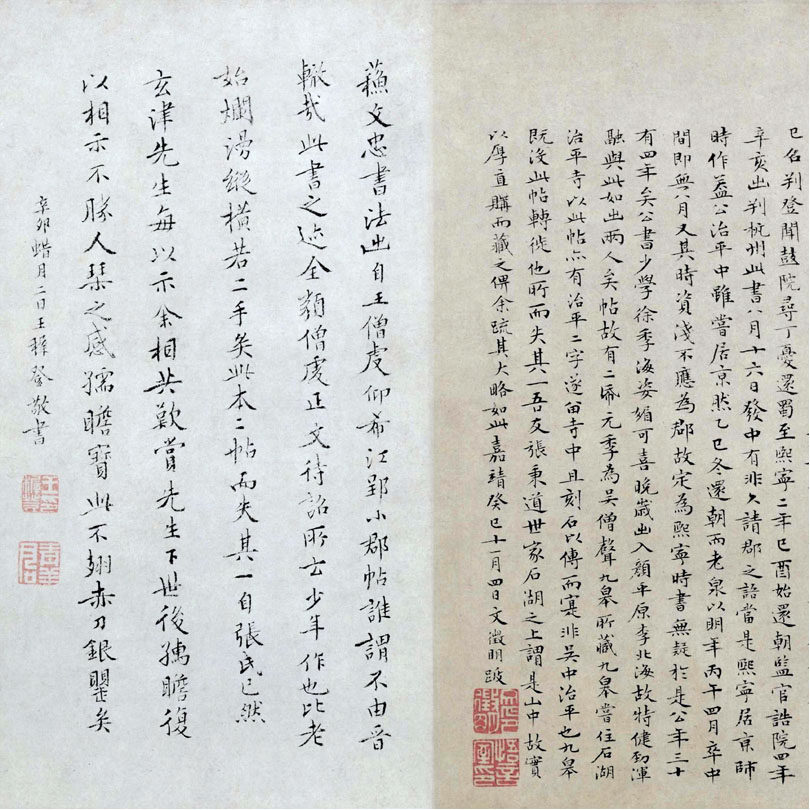 巳召判登聞鼓院尋丁憂還蜀至熙寧二年己酉始還朝監官誥院四年
辛亥出判杭州此書八月十六日發中有非久請郡之語當是熙寧居京師
時作蓋公治平中雖嘗居京然乙巳冬還朝而老泉以明年丙午四月卒中
間即無八月又其時資淺不應為郡故定為熙寧時書無疑於是公年三十
有四年矣公書少學徐季海姿媚可喜晚歲出入顏平原李北海故特健勁渾
融與此如出兩人矣帖故有二帋元季為吳僧聲九皋所藏九皋嘗住石湖
治平寺以此帖亦有治平二字遂留寺中且刻石以傳而寔非吳中治平也九皋
既沒此帖轉徙他所而失其一吾友張秉道世家石湖之上謂是山中故實
以厚直購而藏之俾余疏其大略如此嘉靖癸巳十一月四日文徵明跋
蘓文忠書法出自王僧虔仰希江郢小郡帖誰謂不由晉
轍哉此書之迹全類僧虔正文待詔所云少年作也比老
始爛漫縱橫若二手矣此本二帖而失其一自張氏已然
玄津先生每以示余相共歎賞先生下世後孺瞻復
以相示不勝人琴之感孺瞻寶此不翅赤刀銀罌矣
辛卯蜡月二日王穉登敬書